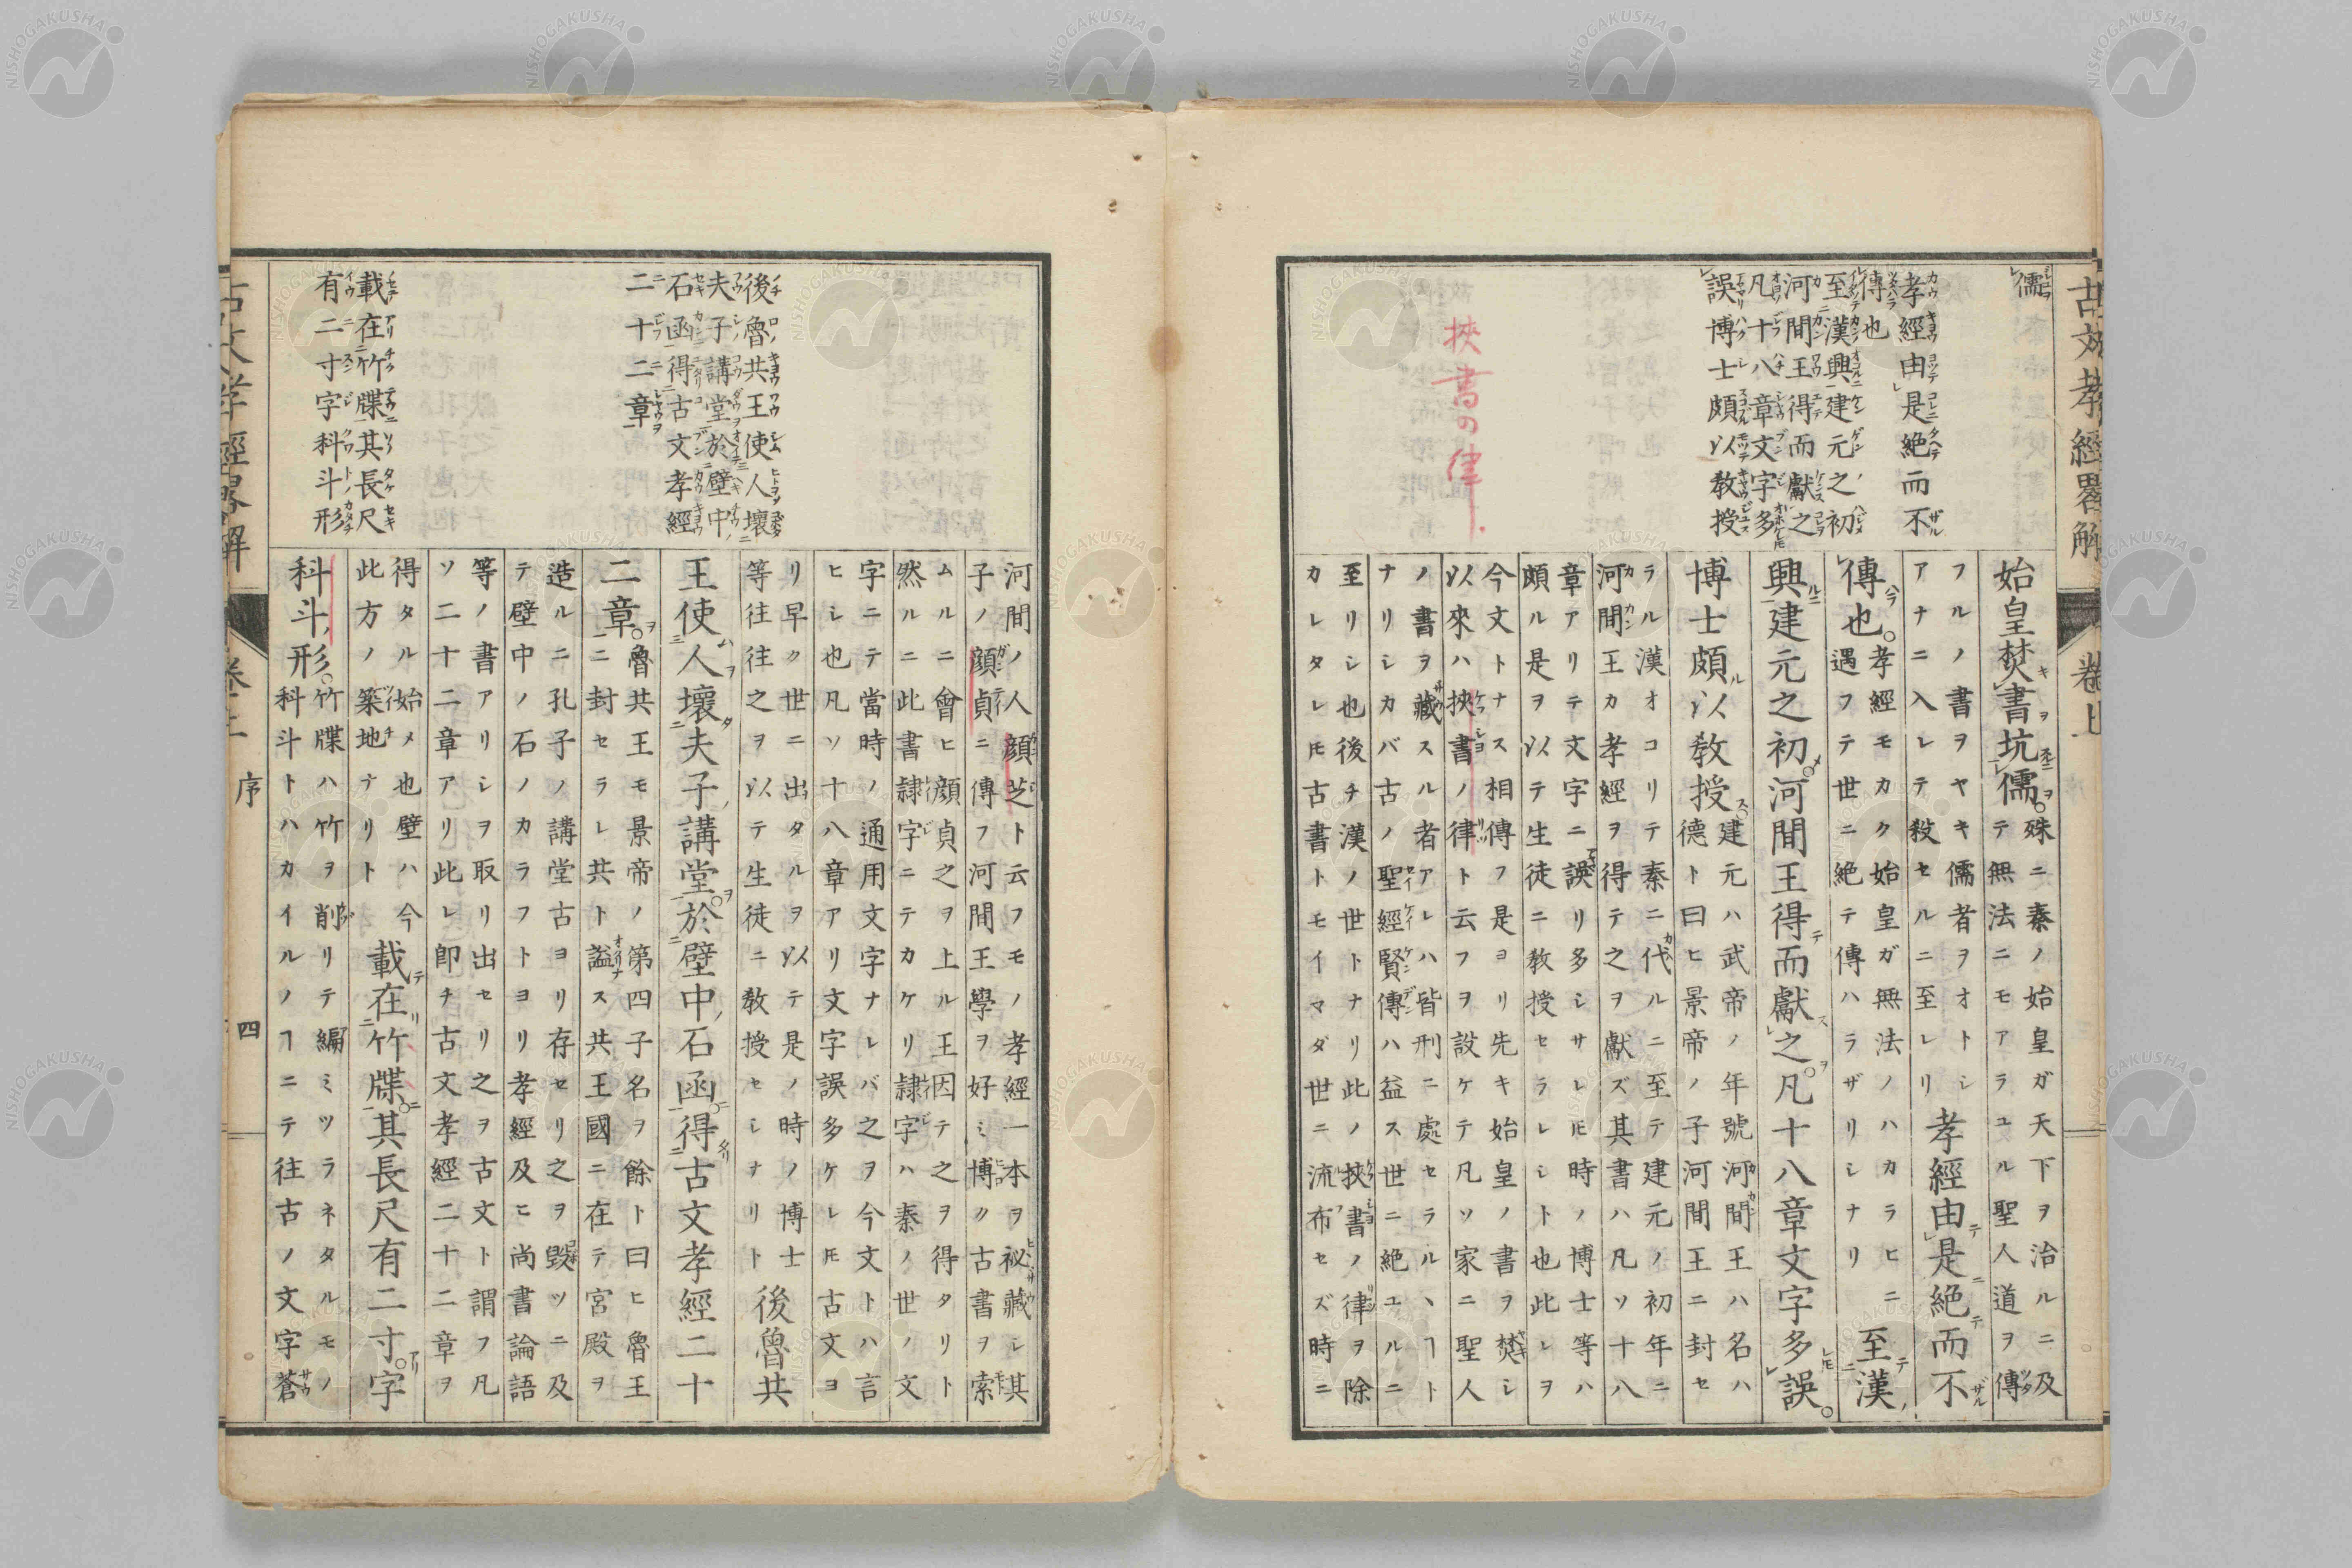 古文孝經畧解 卷上
儒
孝經由是絶而不
傳也
至漢興建元之初
河間王得而獻之
凡十八章文字多
誤博士頗以教授
挾書の律
始皇焚書坑儒。
殊ニ秦ノ始皇ガ天下ヲ治ルニ及
テ無法ニモアラユル聖人道ヲ傳
フルノ書ヲヤキ儒者ヲオトシ
アナニ入レテ殺セルニ至レリ
孝經由是絶而不
傳也。
孝經モカク始皇ガ無法ノハカラヒニ
遇フテ世ニ絶テ傳ハラザリシナリ
至漢
興建元之初。河間王得而獻之。凡十八章文字多誤。
博士頗以教授。
建元ハ武帝ノ年號河間王ハ名ハ
德ト曰ヒ景帝ノ子河間王ニ封セ
ラル漢オコリテ秦ニ代ルニ至テ建元ノ初年ニ
河間王カ孝經ヲ得テ之ヲ獻ズ其書ハ凡ソ十八
章アリテ文字ニ誤リ多シサレ𪜈時ノ博士等ハ
頗ル是ヲ以テ生徒ニ教授セラレシト也此レヲ
今文トナス相傳フ是ヨリ先キ始皇ノ書ヲ焚シ
以來ハ挾書ノ律ト云フヲ設ケテ凡ソ家ニ聖人
ノ書ヲ藏スル者アレハ皆刑ニ處セラルヽヿト
ナリシカバ古ノ聖經賢傳ハ益ス世ニ絶ユルニ
至リシ也後チ漢ノ世トナリ此ノ挾書ノ律ヲ除
カレタレ𪜈古書トモイマダ世ニ流布セズ時ニ
後魯共王使人壞
夫子講堂於壁中
石函得古文孝經
二十二章
載在竹牒其長尺
有二寸字科斗形
河間ノ人顔芝ト云フモノ孝經一本ヲ祕藏シ其
子ノ顔貞ニ傳フ河間王學ヲ好ミ博ク古書ヲ索
ムルニ會ヒ顔貞之ヲ上ル王因テ之ヲ得タリト
然ルニ此書隷字ニテカケリ隷字ハ秦ノ世ノ文
字ニテ當時ノ通用文字ナレバ之ヲ今文トハ言
ヒシ也凡ソ十八章アリ文字誤多ケレ𪜈古文ヨ
リ早ク世ニ出タルヲ以テ是ノ時ノ博士
等往往之ヲ以テ生徒ニ教授セシナリト
後魯共
王使人壞夫子講堂。於壁中石函。得古文孝經二十
二章。
魯共王モ景帝ノ第四子名ヲ餘ト曰ヒ魯王
ニ封セラレ共ト謚ス共王國ニ在テ宮殿ヲ
造ルニ孔子ノ講堂古ヨリ存セリ之ヲ毀ツニ及
テ壁中ノ石ノカラフトヨリ孝經及ヒ尚書論語
等ノ書アリシヲ取リ出セリ之ヲ古文ト謂フ凡
ソ二十二章アリ此レ即チ古文孝經二十二章ヲ
得タル始メ也壁ハ今
此方ノ築地ナリト
載在竹牒。其長尺有二寸。字
科斗形。
竹牒ハ竹ヲ削リテ編ミツラネタルモノ
科斗トハカイルノヿニテ往古ノ文字蒼
古文孝經畧解 卷上 序 四
NISHOGAKUSHA